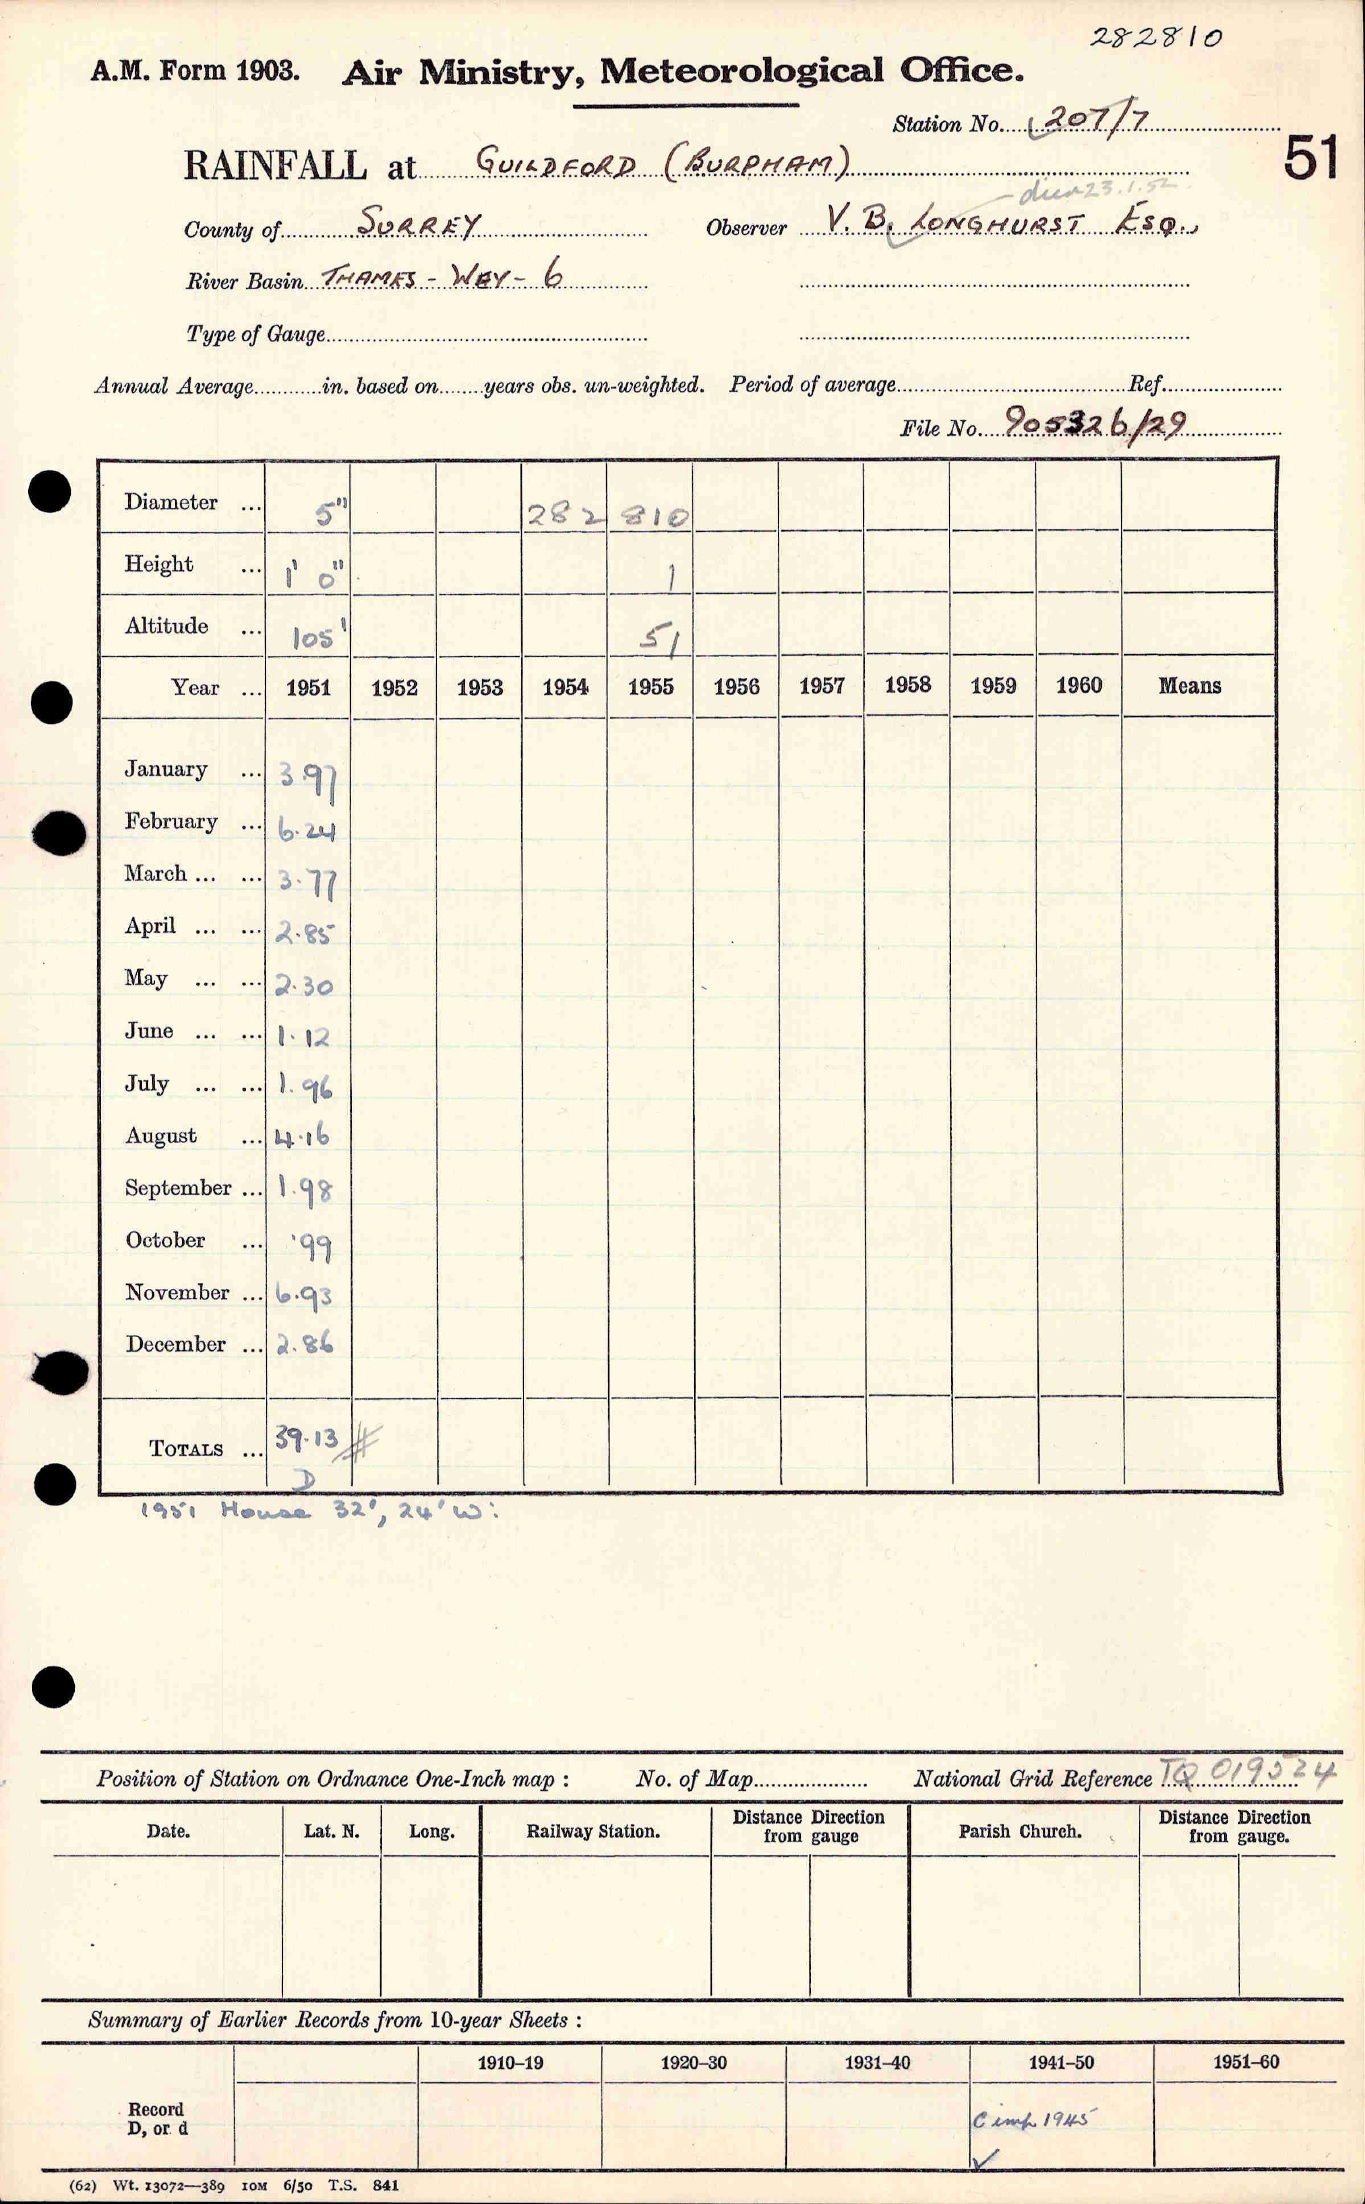 282810
A.M. Form 1903. Air Ministry, Meteorological Office.
Station No. 207/7
51
RAINFALL at GUILDFORD (BURPHAM)
died 23.1.52
County of SURREY Observer V. B. LONGHURST ESQ.,
River Basin THAMES - WEY - 6
Type of Gauge
Annual Average in. based on years obs. un-weighted. Period of average Ref.
File No. 905326/29
Diameter ... 5" 282 810
Height ... 1' 0" 1
Altitude ... 105' 51
Year ... 1951 1952 1953 1954 1955 1956 1957 1958 1959 1960 Means
January ... 3.97
February ... 6.24
March ... ... 3.77
April ... ... 2.85
May ... ... 2.30
June ... ... 1.12
July ... ... 1.96
August ... 4.16
September ... 1.98
October ... .99
November ... 6.93
December ... 2.86
TOTALS ... 39.13
D
1951 House 32', 24' W.
Position of Station on Ordnance One-Inch map : No. of Map National Grid Reference TQ 019524
Date. Lat. N. Long. Railway Station. Distance Direction from gauge Parish Church. Distance Direction from gauge.
Summary of Earlier Records from 10-year Sheets :
1910-19 1920-30 1931-40 1941-50 1951-60
Record
D, or d
C imp 1945
(62) Wt. 13072—389 10M 6/50 T.S. 841